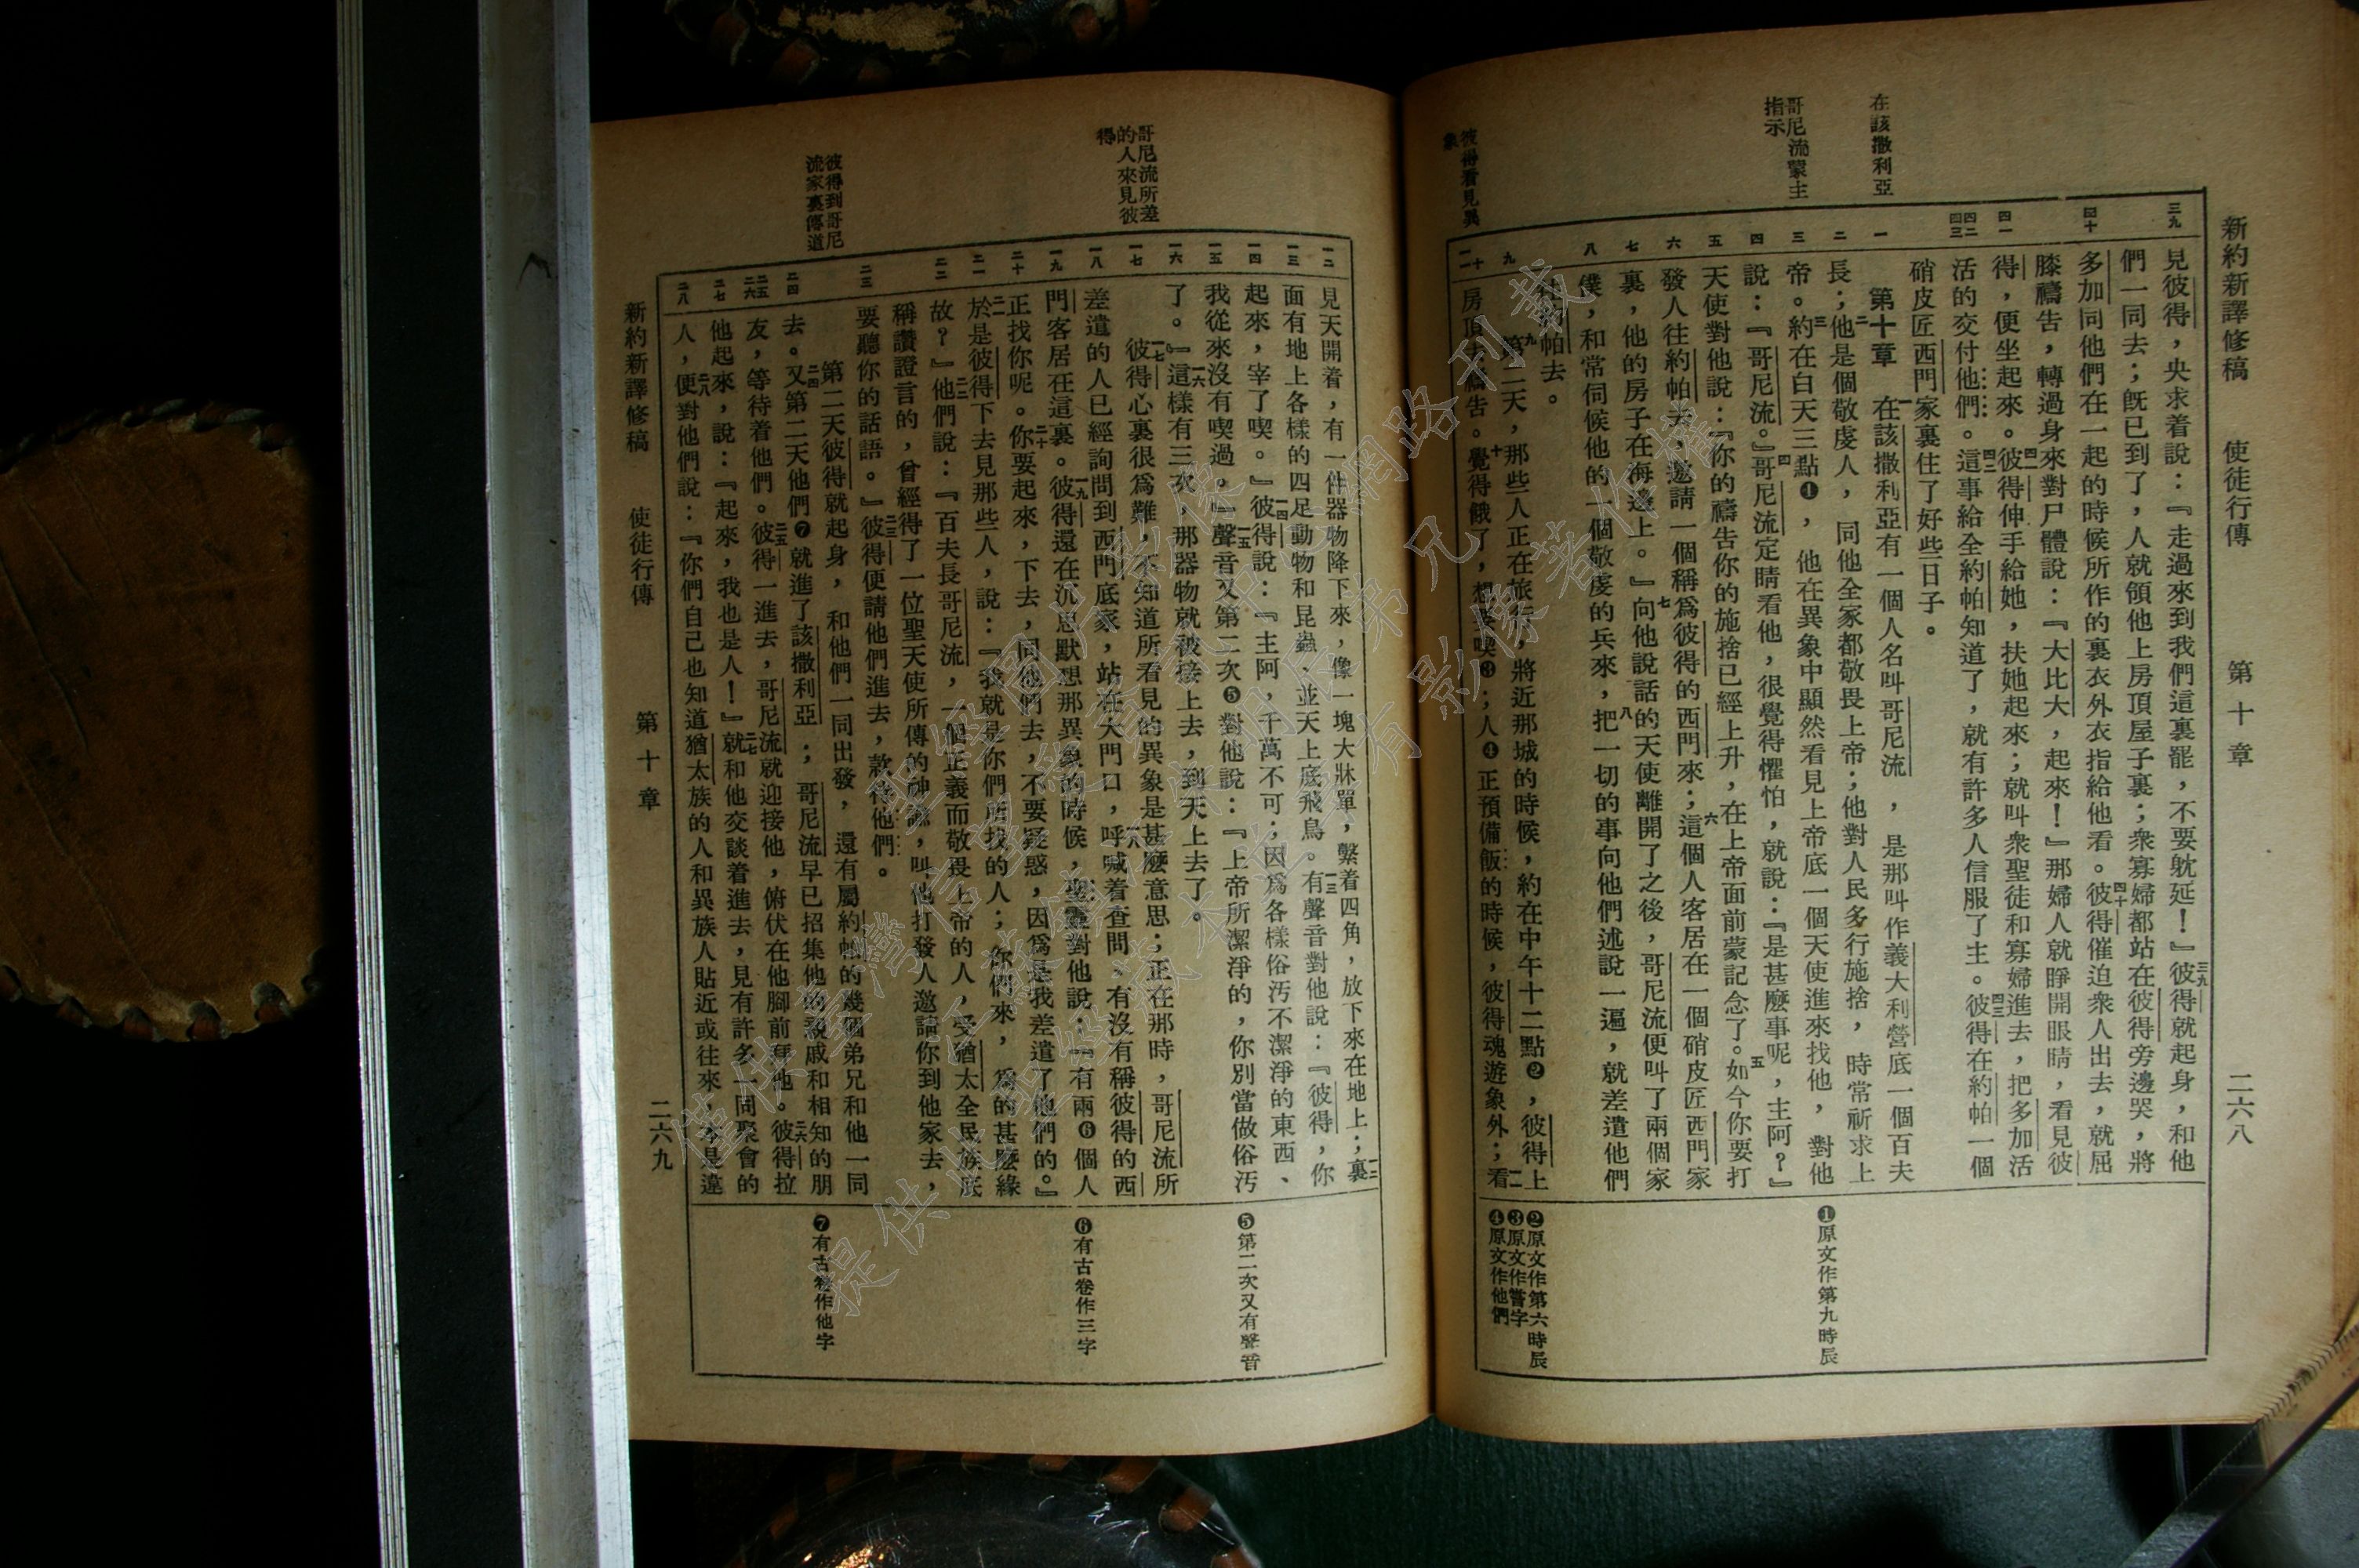 新約新譯修稿　使徒行傳　第十章　二六八
在該撒利亞
哥尼流蒙主
指示
彼得看見異
象
三九
四十
四一
四二
四三
一
二
三
四
五
六
七
八
九
十
一一
見彼得，央求着說：『走過來到我們這裏罷，不要躭延！』三九彼得就起身，和他
們一同去；旣已到了，人就領他上房頂屋子裏；衆寡婦都站在彼得旁邊哭，將
多加同他們在一起的時候所作的裏衣外衣指給他看。四十彼得催迫衆人出去，就屈
膝禱告，轉過身來對尸體說：『大比大，起來！』那婦人就睜開眼睛，看見彼
得，便坐起來。四一彼得伸手給她，扶她起來；就叫衆聖徒和寡婦進去，把多加活
活的交付他們。四二這事給全約帕知道了，就有許多人信服了主。四三彼得在約帕一個
硝皮匠西門家裏住了好些日子。
第十章　一在該撒利亞有一個人名叫哥尼流，是那叫作義大利營底一個百夫
長；二他是個敬虔人，同他全家都敬畏上帝；他對人民多行施捨，時常祈求上
帝。三約在白天三點❶，他在異象中顯然看見上帝底一個天使進來找他，對他
說：『哥尼流。』四哥尼流定睛看他，很覺得懼怕，就說：『是甚麽事呢，主阿？』
天使對他說：『你的禱告你的施捨已經上升，在上帝面前蒙記念了。五如今你要打
發人往約帕去，邀請一個稱爲彼得的西門來；六這個人客居在一個硝皮匠西門家
裏，他的房子在海邊上。』七向他說話的天使離開了之後，哥尼流便叫了兩個家
僕，和常伺候他的一個敬虔的兵來，八把一切的事向他們述說一遍，就差遣他們
往約帕去。
九第二天，那些人正在旅行，將近那城的時候，約在中午十二點❷，彼得上
房頂去禱告。十覺得餓了，想要喫❸；人❹正預備飯的時候，彼得魂遊象外；一一看
❶原文作第九時辰
❷原文作第六時辰
❸原文作嘗字
❹原文作他們
哥尼流所差
的人來見彼
得
彼得到哥尼
流家裏傳道
一二
一三
一四
一五
一六
一七
一八
一九
二十
二一
二二
二三
二四
二五
二六
二七
二八
見天開着，有一件器物降下來，像一塊大牀單，繫着四角，放下來在地上；一二裏
面有地上各樣的四足動物和昆蟲、並天上底飛鳥。一三有聲音對他說：『彼得，你
起來，宰了喫。』一四彼得說：『主阿，千萬不可；因爲各樣俗汚不潔淨的東西、
我從來沒有喫過。』一五聲音又第二次❺對他說：『上帝所潔淨的，你別當做俗汚
了。』一六這樣有三次，那器物就被接上去，到天上去了。
一七彼得心裏很爲難，不知道所看見的異象是甚麽意思；正在那時，哥尼流所
差遣的人已經詢問到西門底家，站在大門口，一八呼喊着查問、有沒有稱彼得的西
門客居在這裏。一九彼得還在沉思默想那異象的時候，聖靈對他說：『有兩❻個人
正找你呢。二十你要起來，下去，同他們去，不要疑惑，因爲是我差遣了他們的。』
二一於是彼得下去見那些人，說：『我就是你們所找的人；你們來，爲的甚麽緣
故？』二二他們說：『百夫長哥尼流，一個正義而敬畏上帝的人，受猶太全民族底
稱讚證言的，曾經得了一位聖天使所傳的神諭，叫他打發人邀請你到他家去，
要聽你的話語。』二三彼得便請他們進去，款待他們。
第二天彼得就起身，和他們一同出發，還有屬約帕的幾個弟兄和他一同
去。二四又第二天他們❼就進了該撒利亞；哥尼流早已招集他的親戚和相知的朋
友，等待着他們。二五彼得一進去，哥尼流就迎接他，俯伏在他脚前拜他。二六彼得拉
他起來，說：『起來，我也是人！』二七就和他交談着進去，見有許多一同聚會的
人，二八便對他們說：『你們自己也知道猶太族的人和異族人貼近或往來、本是違
❺第二次又有聲音
❻有古卷作三字
❼有古卷作他字
新約新譯修稿　使徒行傳　第十章　二六九